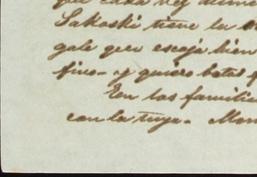 que cada vez
Sakoski tiene la
gale que escoja bien
fino - y quiero botas
En las familia
con la tuya. Man